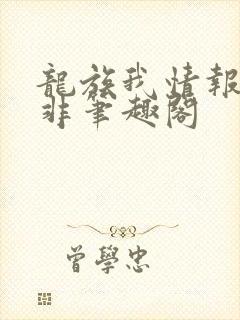 龍族我情報
非筆趣閣
曾學忠